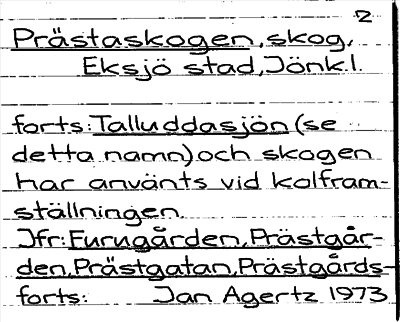 2
Prästaskogen, skog,
Eksjö stad, Jönk.l.
forts: Talluddasjön (se
detta namn) och skogen
har använts vid kolfram-
ställningen.
Jfr: Furugården, Prästgår-
den, Prästgatan, Prästgårds-
forts: Jan Agertz 1973